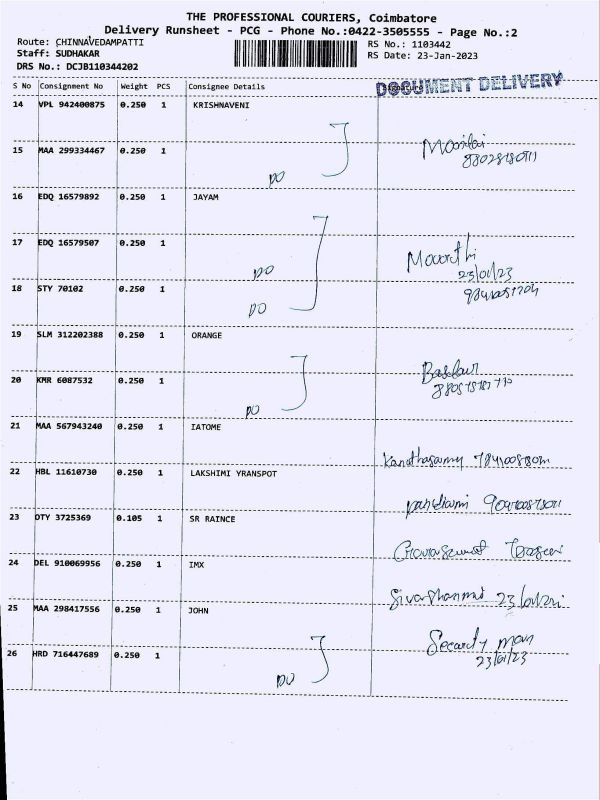 THE PROFESSIONAL COURIERS, Coimbatore
Delivery Runsheet - PCG - Phone No.:0422-3505555 - Page No.:2
Route: CHINNAVEDAMPATTI RS No.: 1103442
Staff: SUDHAKAR RS Date: 23-Jan-2023
DRS No.: DCJB110344202
DOCUMENT DELIVERY
S No Consignment No Weight PCS Consignee Details Signature
14 VPL 942400875 0.250 1 KRISHNAVENI
15 MAA 299334467 0.250 1
DO
16 EDQ 16579892 0.250 1 JAYAM
17 EDQ 16579507 0.250 1
DO 23/01/23
18 STY 70102 0.250 1
DO
19 SLM 312202388 0.250 1 ORANGE
20 KMR 6087532 0.250 1
DO
21 MAA 567943240 0.250 1 IATOME
22 HBL 11610730 0.250 1 LAKSHIMI YRANSPOT
23 OTY 3725369 0.105 1 SR RAINCE
24 DEL 910069956 0.250 1 IMX
25 MAA 298417556 0.250 1 JOHN
Security man
26 HRD 716447689 0.250 1 23/01/23
DO